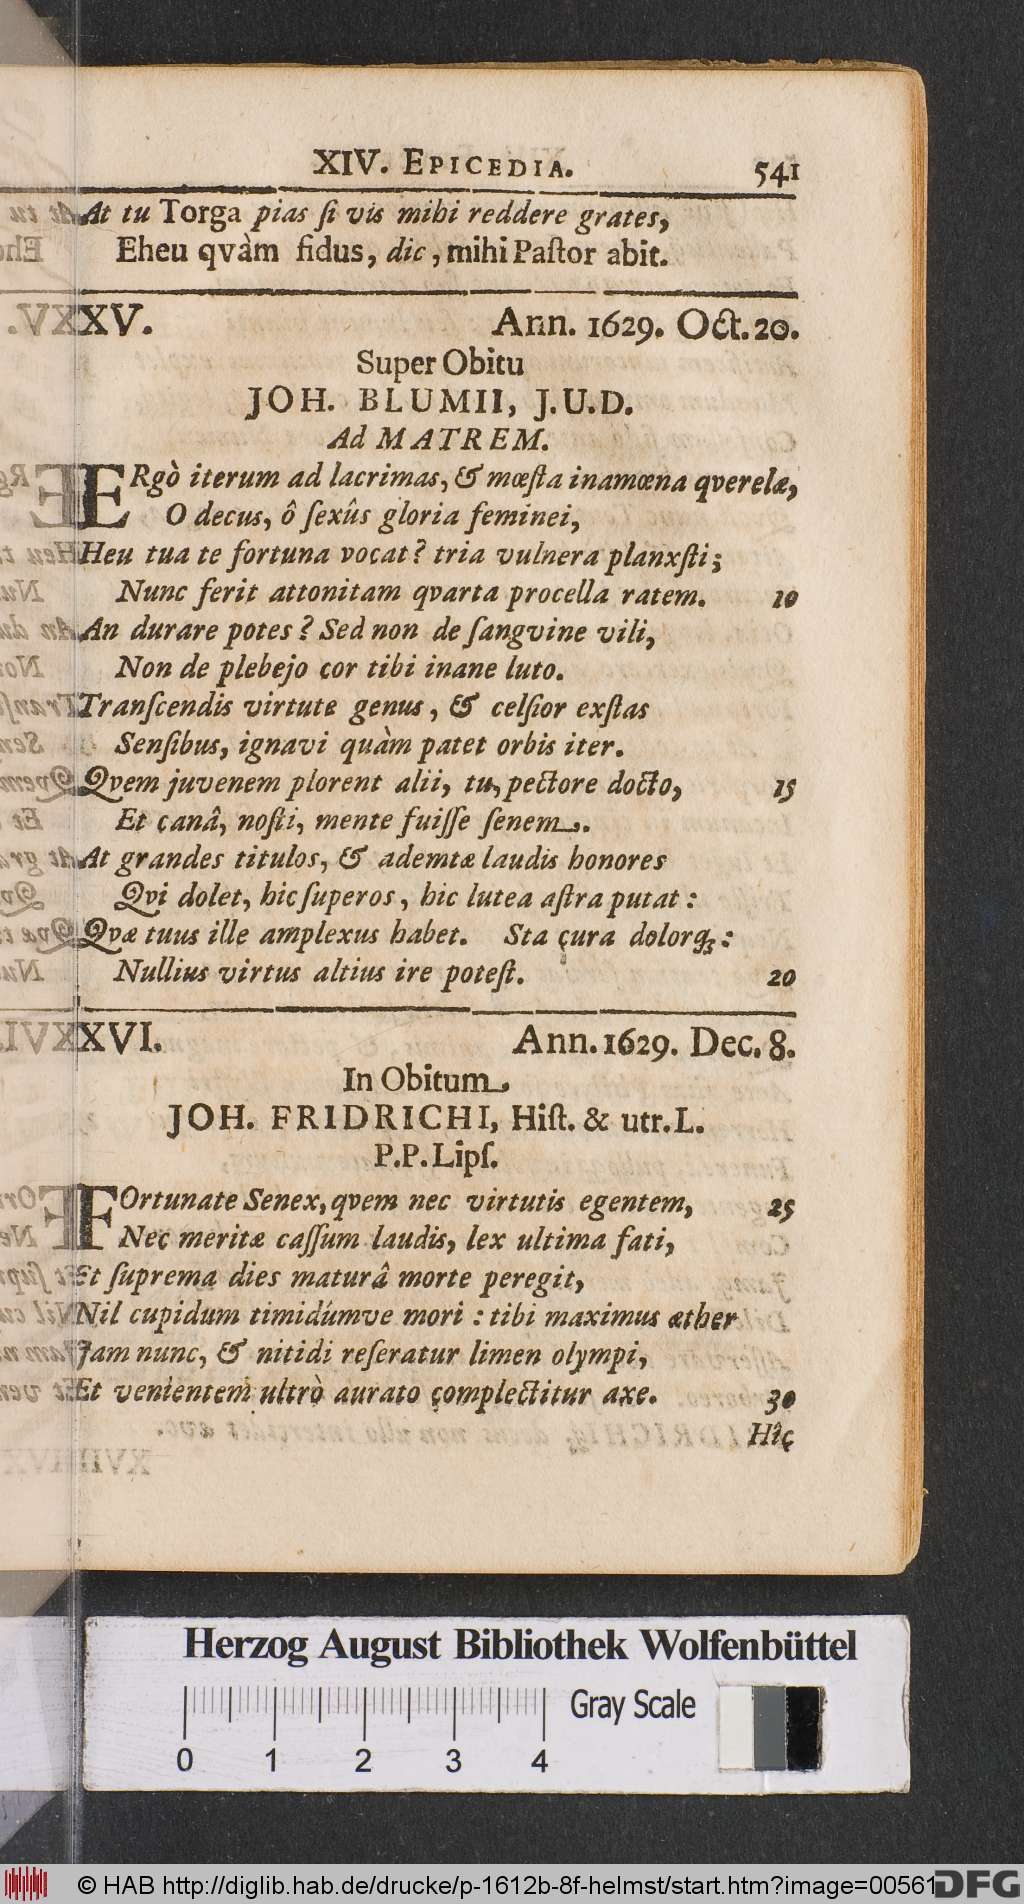 XIV. EPICEDIA. 541
At tu Torga pias ſi vis mihi reddere grates,
Eheu qvàm fidus, dic, mihi Paſtor abit.
XXV. Ann. 1629. Oct. 20.
Super Obitu
JOH. BLUMII, J.U.D.
Ad MATREM.
ERgò iterum ad lacrimas, & mœſta inamœna qverelæ,
O decus, ô ſexûs gloria feminei,
Heu tua te fortuna vocat? tria vulnera planxſti;
Nunc ferit attonitam qvarta procella ratem. 10
An durare potes? Sed non de ſangvine vili,
Non de plebejo cor tibi inane luto.
Tranſcendis virtute genus, & celſior exſtas
Senſibus, ignavi quàm patet orbis iter.
Qvem juvenem plorent alii, tu, pectore docto, 15
Et canâ, noſti, mente fuiſſe ſenem.
At grandes titulos, & ademtæ laudis honores
Qvi dolet, hic ſuperos, hic lutea aſtra putat:
Qvæ tuus ille amplexus habet. Sta cura dolorq́;:
Nullius virtus altius ire poteſt. 20
XXVI. Ann. 1629. Dec. 8.
In Obitum
JOH. FRIDRICHI, Hiſt. & utr. L.
P.P. Lipſ.
FOrtunate Senex, qvem nec virtutis egentem, 25
Nec meritæ caſſum laudis, lex ultima fati,
Et ſuprema dies maturâ morte peregit,
Nil cupidum timidúmve mori: tibi maximus æther
Jam nunc, & nitidi reſeratur limen olympi,
Et venientem ultrò aurato complectitur axe. 30
Hîc
Herzog August Bibliothek Wolfenbüttel
Gray Scale
0 1 2 3 4
© HAB http://diglib.hab.de/drucke/p-1612b-8f-helmst/start.htm?image=00561
DFG